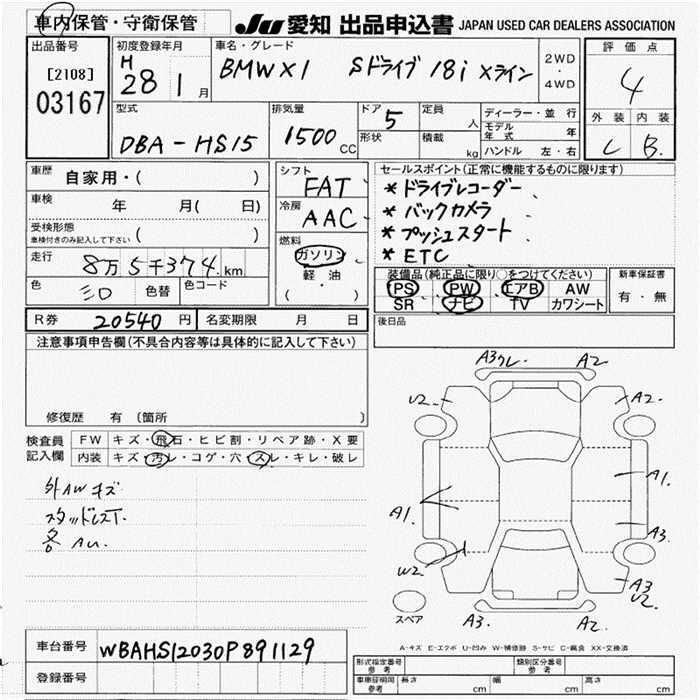 車内保管・守衛保管
JU 愛知 出品申込書 JAPAN USED CAR DEALERS ASSOCIATION
出品番号
[2108]
03167
初度登録年月
H 28 1 月
車名・グレード
BMW X1 Sドライブ 18i Xライン
2WD
・
4WD
評価点
4
外装 内装
C B.
型式
DBA-HS15
排気量
1500 CC
ドア 5
形状
定員 人
積載 kg
ディーラー・並行
モデル年式 年
ハンドル 左・右
車歴 自家用・( )
車検 年 月( 日)
受検形態
車検付きのみ記入して下さい ( )
走行 8万5千374 km
色 色替 色コード
シフト
FAT
冷房
AAC
燃料
ガソリン
・
軽・油
( )
セールスポイント(正常に機能するものに限ります)
* ドライブレコーダー
* バックカメラ
* プッシュスタート
* ETC
装備品(純正品に限り○をつけてください)
PS PW エアB AW
SR ナビ TV カワシート
新車保証書
有・無
後日品
R券 20540 円 名変期限 月 日
注意事項申告欄(不具合内容等は具体的に記入して下さい)
修復歴 有 〔箇所 〕
検査員
記入欄
FW キズ・飛石・ヒビ割・リペア跡・X要
内装 キズ・汚レ・コゲ・穴・スレ・キレ・破レ
外AWキズ
スタッドレスT.
各AU.
A3 A2
U2 A2.
A1. A1.
A3.
W2 A3
U2
スペア
A3. A2
A-キズ E-エクボ U-凹み W-補修跡 S-サビ C-腐食 XX-交換済
車台番号 WBAHS12030P891129
登録番号
形式指定番号
参考
類別区分番号
参考
車庫証明用
参考
長さ cm 幅 cm 高さ cm